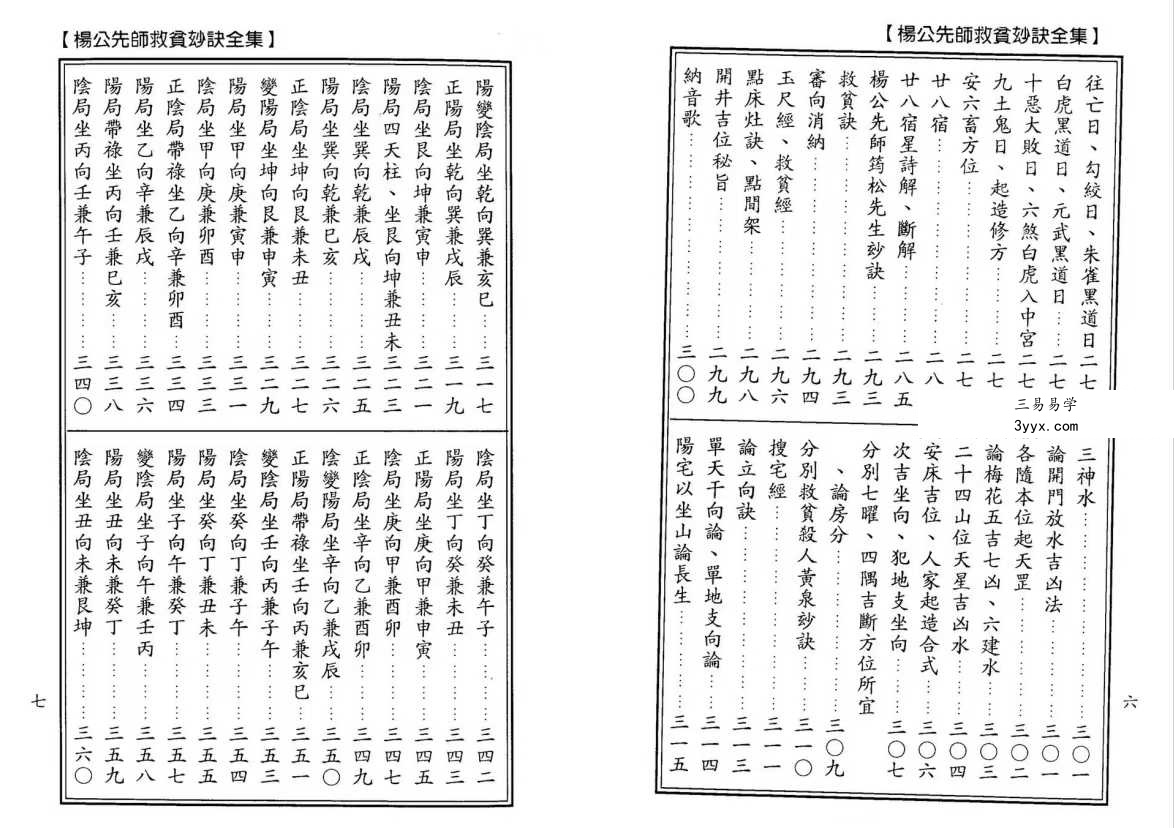 【楊公先師救貧玅訣全集】
往亡日、勾絞日、朱雀黑道日二七
白虎黑道日、元武黑道日……二七
十惡大敗日、六煞白虎入中宮二七
九土鬼日、起造修方……二七
安六畜方位……二七
廿八宿……二八
廿八宿星詩解、斷解……二八五
楊公先師筠松先生玅訣……二九三
救貧訣……二九三
審向消納……二九四
玉尺經、救貧經……二九六
點床灶訣、點間架……二九八
開井吉位秘旨……二九九
納音歌……三〇〇
三易易学
3yyx.com
三神水……三〇一
論開門放水吉凶法……三〇一
各隨本位起天罡……三〇二
論梅花五吉七凶、六建水……三〇三
二十四山位天星吉凶水……三〇四
安床吉位、人家起造合式……三〇六
次吉坐向、犯地支坐向……三〇七
分別七曜、四隅吉斷方位所宜
、論房分……三〇九
分別救貧殺人黃泉玅訣……三一〇
搜宅經……三一一
論立向訣……三一三
單天干向論、單地支向論……三一四
陽宅以坐山論長生……三一五
六
【楊公先師救貧玅訣全集】
陽變陰局坐乾向巽兼亥巳……三一七
正陽局坐乾向巽兼戌辰……三一九
陰局坐艮向坤兼寅申……三二一
陽局四天柱、坐艮向坤兼丑未三二三
陰局坐巽向乾兼辰戌……三二五
陽局坐巽向乾兼巳亥……三二六
正陰局坐坤向艮兼未丑……三二七
變陽局坐坤向艮兼申寅……三二九
陽局坐甲向庚兼寅申……三三一
陰局坐甲向庚兼卯酉……三三三
正陰局帶祿坐乙向辛兼卯酉…三三四
陽局坐乙向辛兼辰戌……三三六
陽局帶祿坐丙向壬兼巳亥……三三八
陰局坐丙向壬兼午子……三四〇
陰局坐丁向癸兼午子……三四二
陽局坐丁向癸兼未丑……三四三
正陽局坐庚向甲兼申寅……三四五
陰局坐庚向甲兼酉卯……三四七
正陰局坐辛向乙兼酉卯……三四九
陰變陽局坐辛向乙兼戌辰……三五〇
正陽局帶祿坐壬向丙兼亥巳…三五一
變陰局坐壬向丙兼子午……三五三
陰局坐癸向丁兼子午……三五四
陽局坐癸向丁兼丑未……三五五
陽局坐子向午兼癸丁……三五七
變陰局坐子向午兼壬丙……三五八
陽局坐丑向未兼癸丁……三五九
陰局坐丑向未兼艮坤……三六〇
七